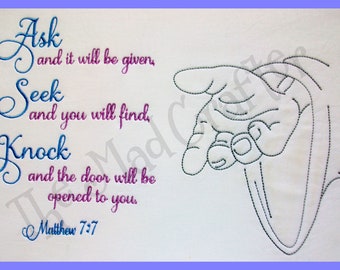 Ask
and it will be given,
Seek
and you will find,
Knock
and the door will be
opened to you.
Matthew 7:7
The Mad Crafter